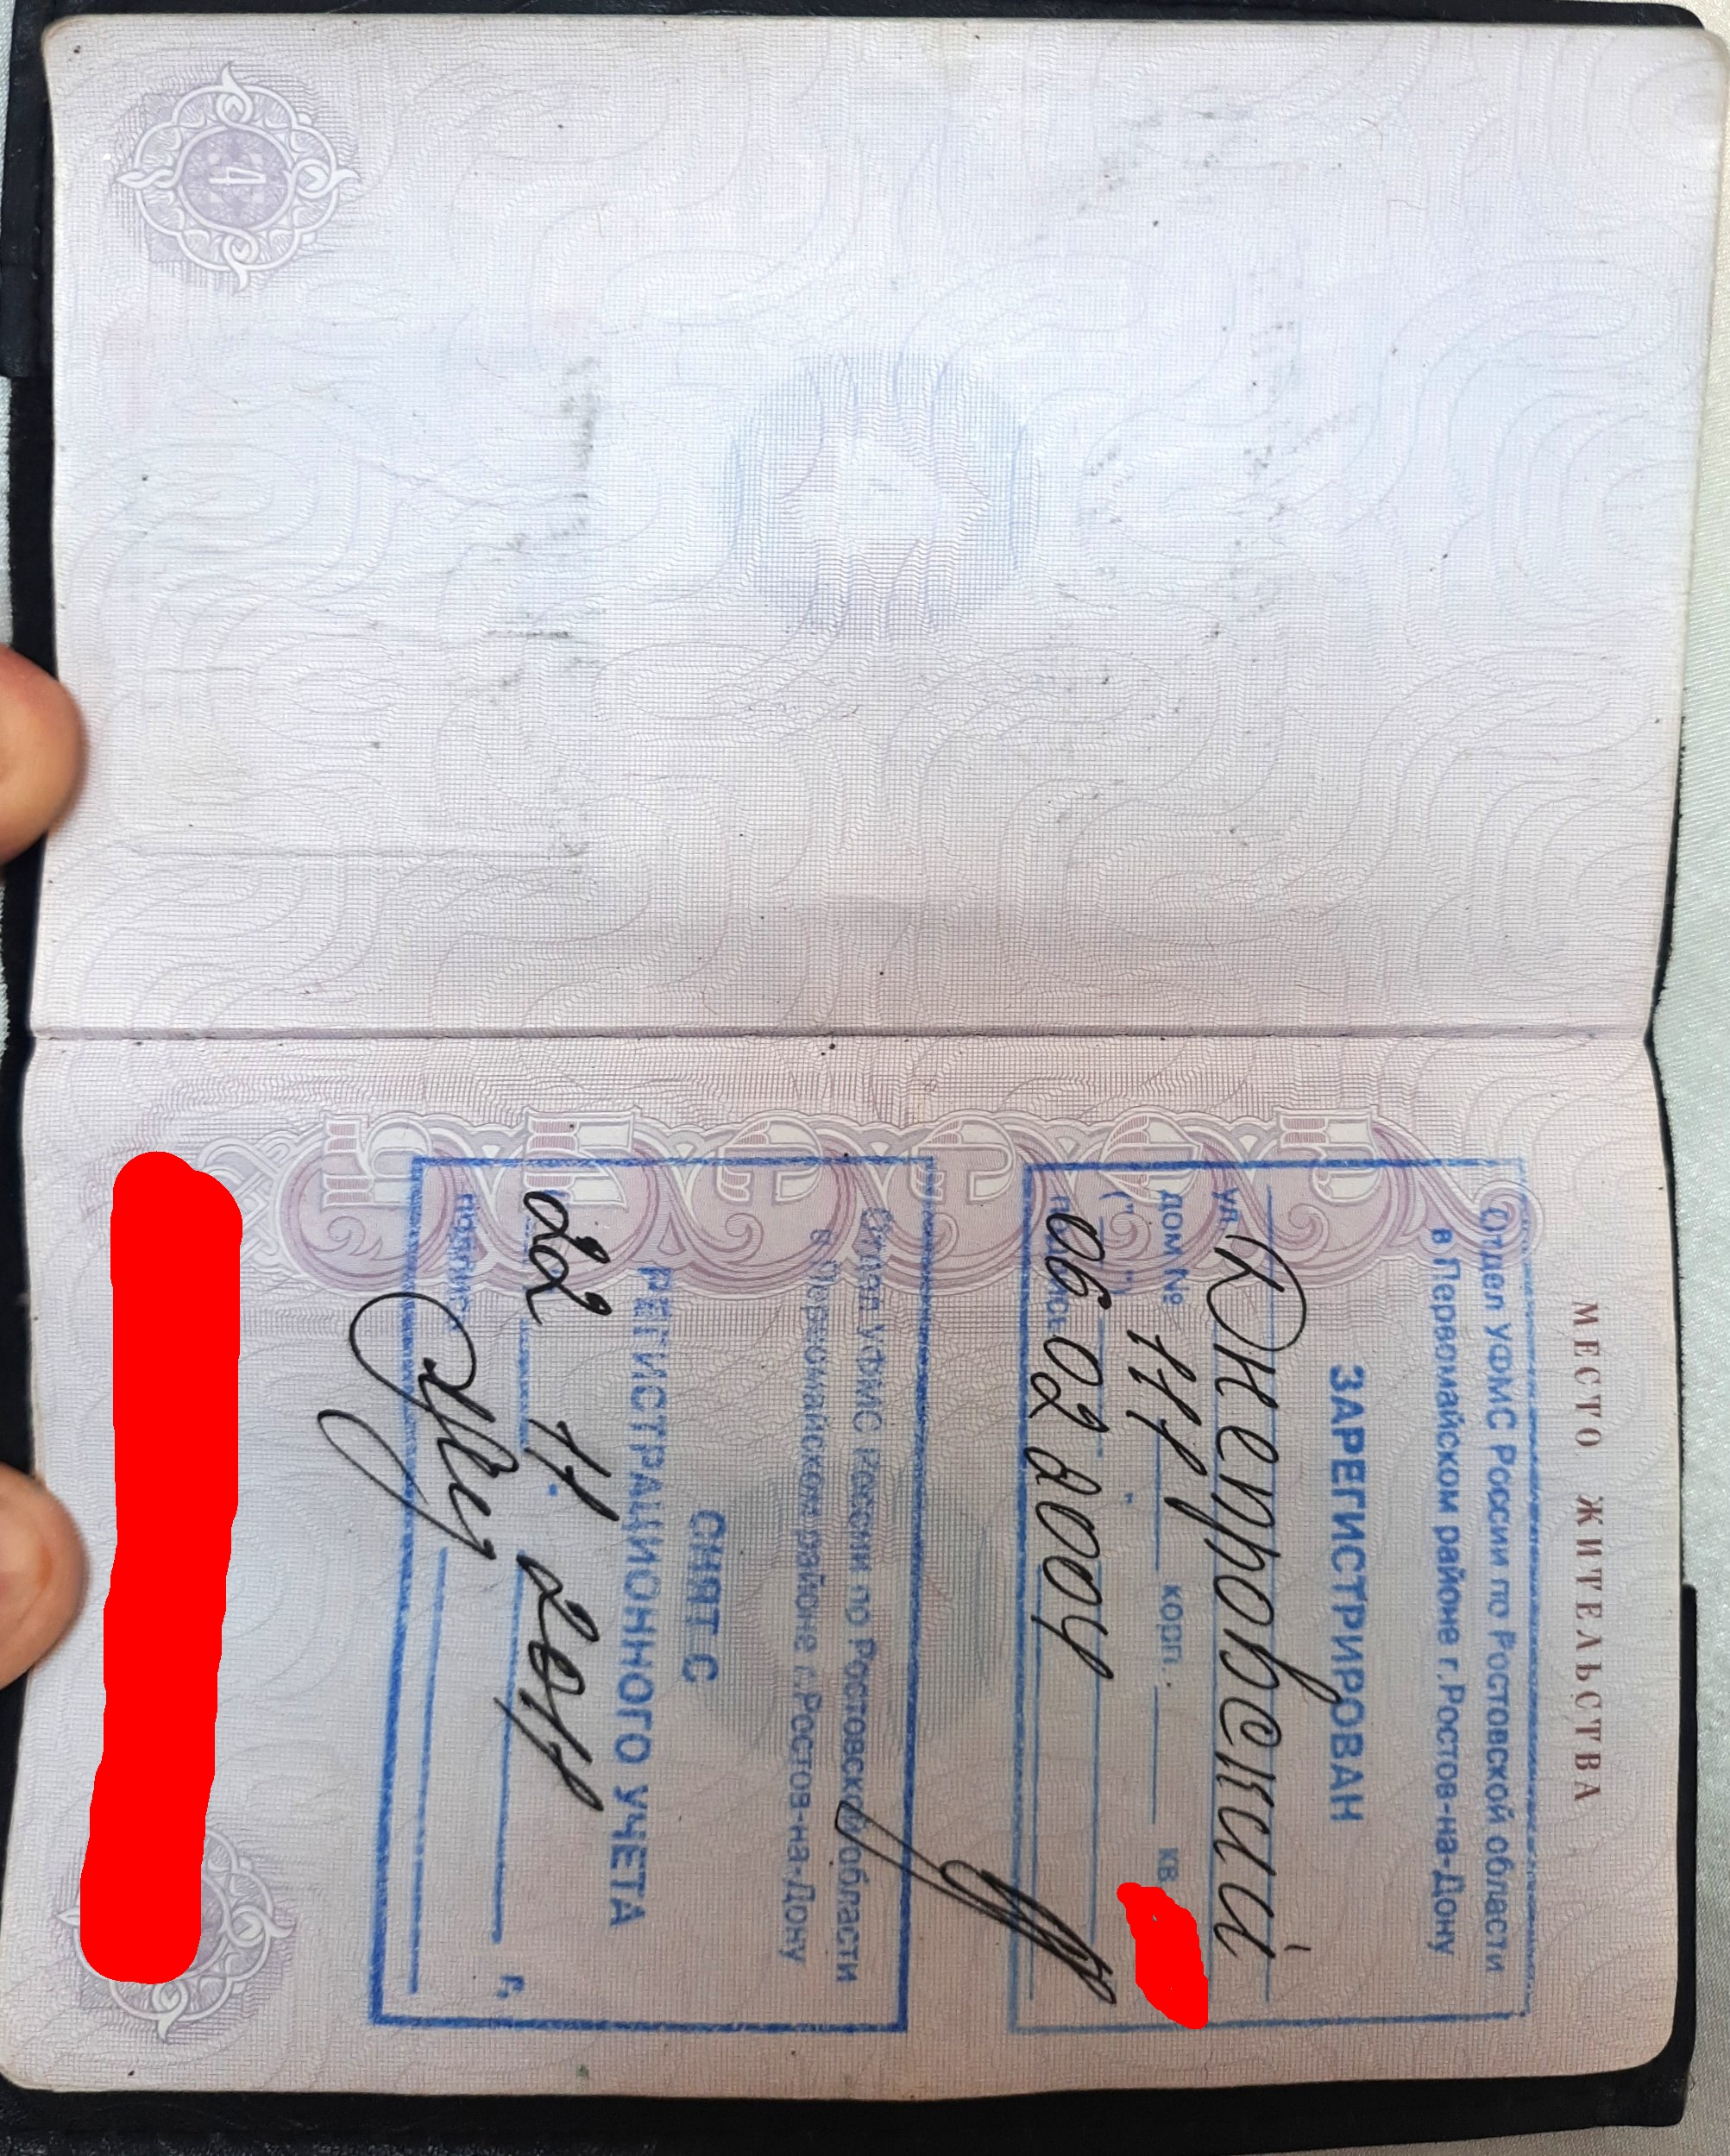 4
МЕСТО ЖИТЕЛЬСТВА
Отдел УФМС России по Ростовской области
в Первомайском районе г.Ростов-на-Дону
ЗАРЕГИСТРИРОВАН
ул. Днепровский
дом № 111 корп. кв
06 02 2004
подпись
Отдел УФМС России по Ростовской области
в Первомайском районе г.Ростов-на-Дону
СНЯТ С
РЕГИСТРАЦИОННОГО УЧЕТА
22 11 2011 г.
подпись